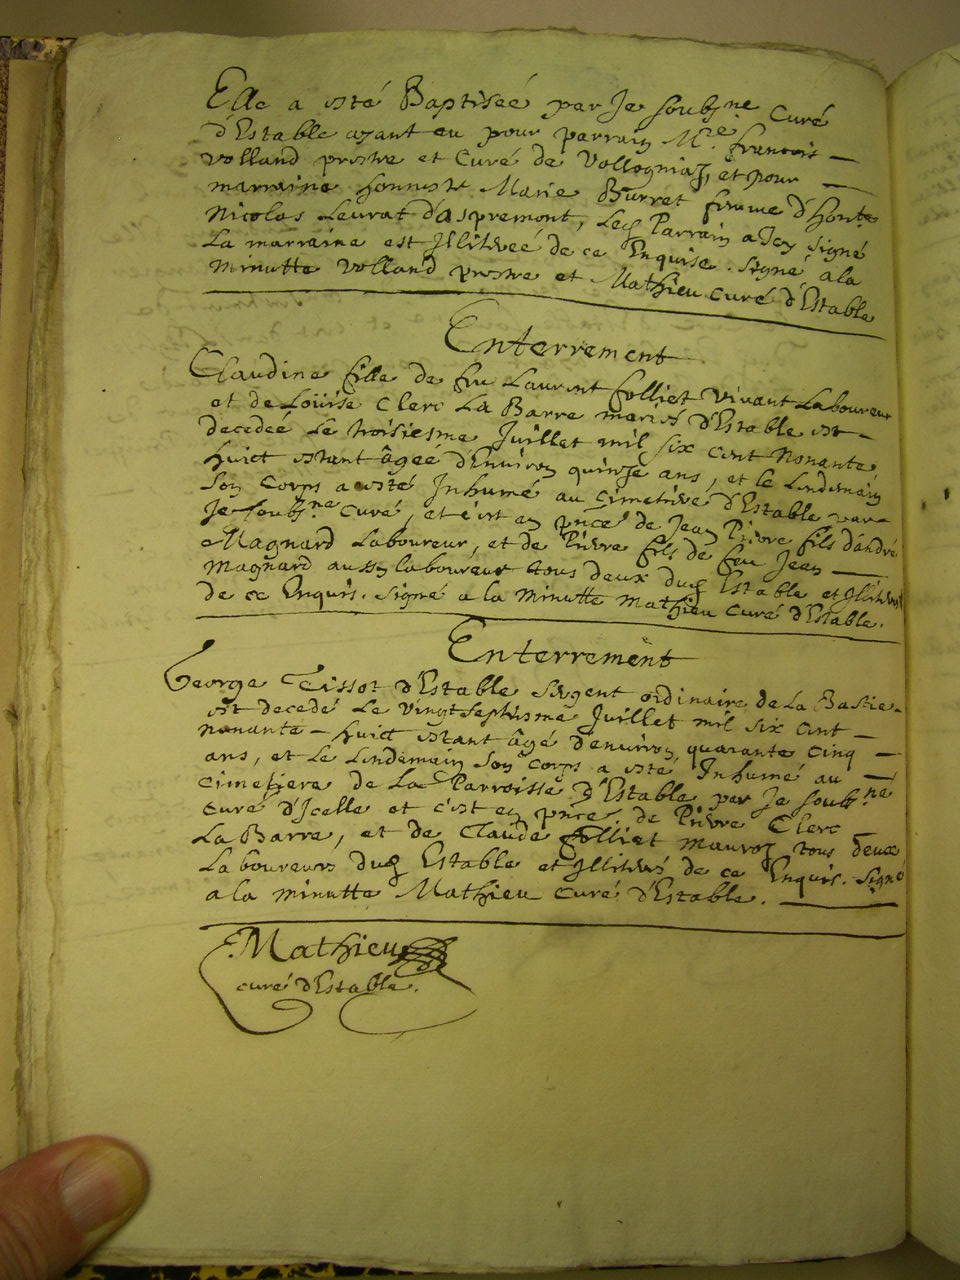 Elle a esté Baptiséé par Je soubs.ne Curé
d'Estable ayant eu pour parrain M.re françois —
volland prestre et Curé de Vollogniaz, et pour —
marraine honneste Marie Burret femme d'hon.te
Nicolas Leurat d'aspremont, Led Parrain a Icy signé
La marraine est Jllitreé de ce Enquise. signé a la
minutte Volland prestre et Mathieu curé d'Estable
Enterrement
Claudine fille de feu Laurent folliet vivant Laboureur
et de Loüise Clerc La Barre mariés d'Estable est —
decedéé Le troisiesme Juillet mil six cent Nonante
huict estant âgéé d'Environ quinze ans, et le Lendemain
son Corps a esté Jnhumé au Cimetiere d'Estable par
Je soubs.ne Curé, et c'est en pnce de Jean Pierre fils d'andré
Magnard Laboureur, et de Pierre fils de feu Jean —
Magnard aussy laboureur tous deux dud Estable et Jllitrés
de ce Enquis. signé a la minutte Mathieu Curé d'Estable.
Enterrement
George Tissot d'Estable sergent ordinaire de La Bastie
est decedé Le vingt septiesme Juillet mil six cent —
nonante - huict estant âgé d'environ quarante cinq —
ans, et Le Lendemain son corps a esté Jnhumé au —
Cimetiere de La Parroisse d'Estable par Je soubs.ne
Curé d'Jcelle et c'est en pnce de Pierre Clerc —
La Barre, et de Claude folliet mauroz tous deux
Laboureurs dud Estable et Jllitrés de ce Enquis. signé
a la minutte Mathieu Curé d'Estable. —
Mathieu
curé d'Estable.